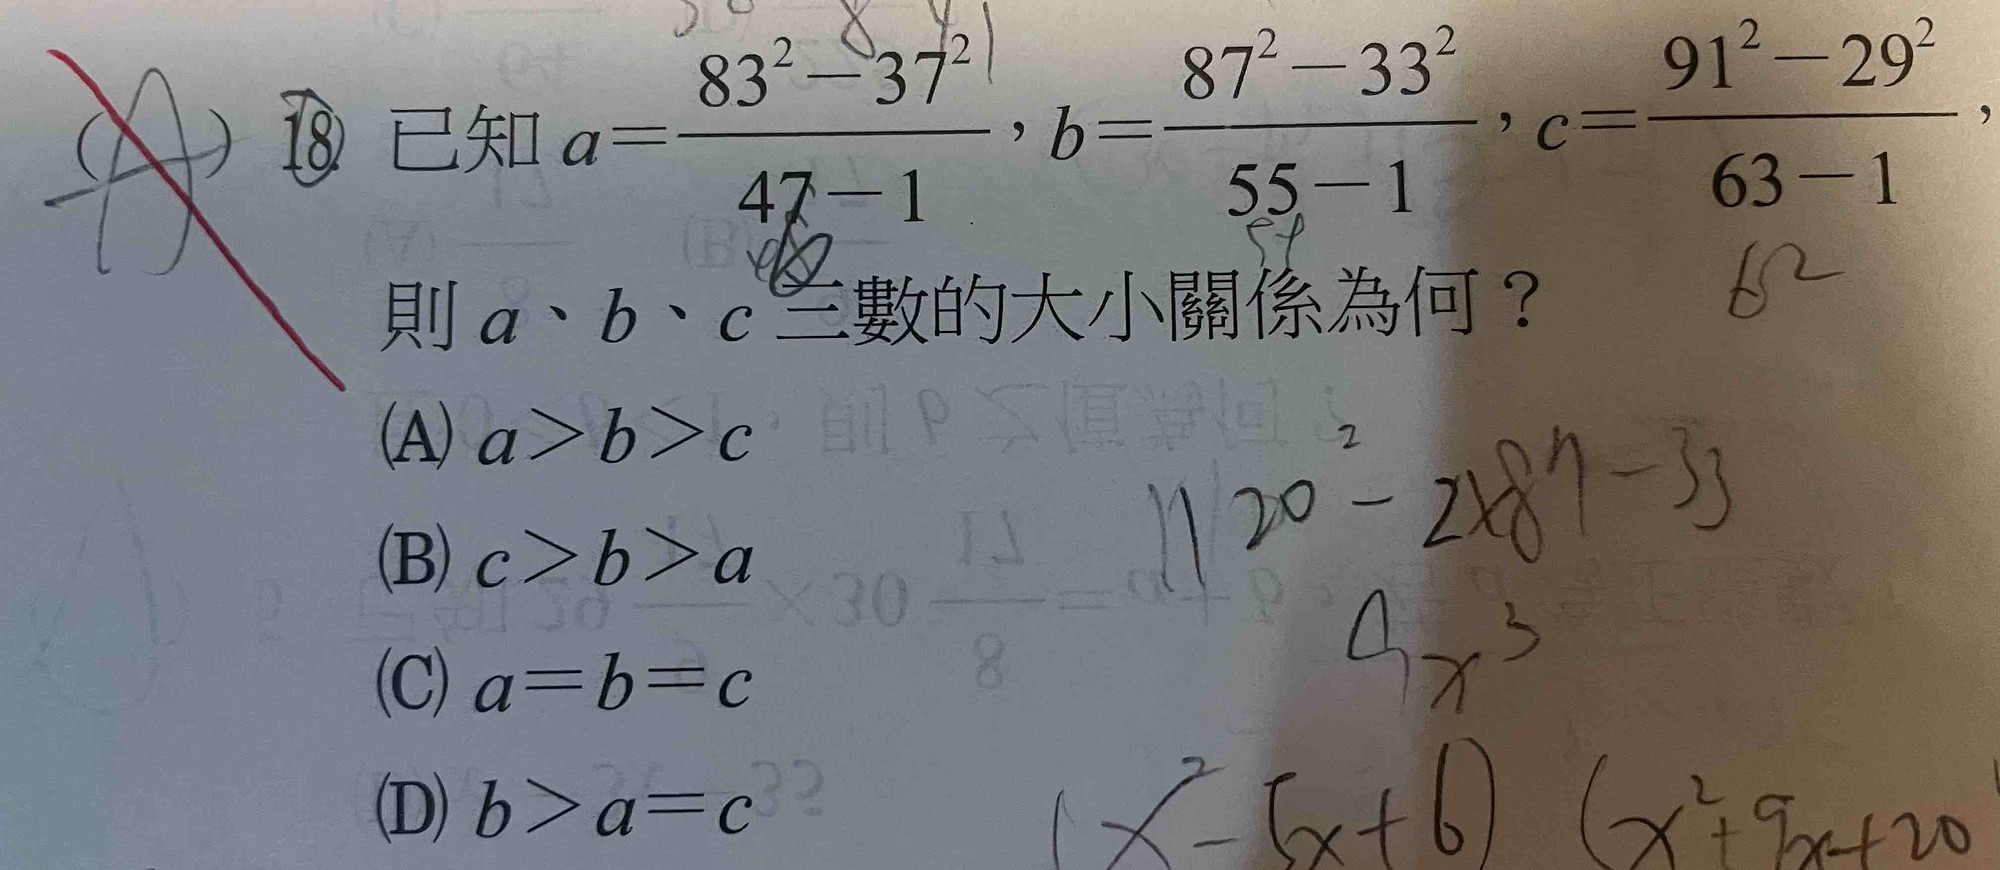 (A) 18. 已知 a=\frac{83²-37²}{47-1}，b=\frac{87²-33²}{55-1}，c=\frac{91²-29²}{63-1}，
54
62
則 a、b、c 三數的大小關係為何？
(A) a>b>c
(B) c>b>a
(C) a=b=c
(D) b>a=c
120²-2x87-33
(x²-5x+6) (x²+9x+20